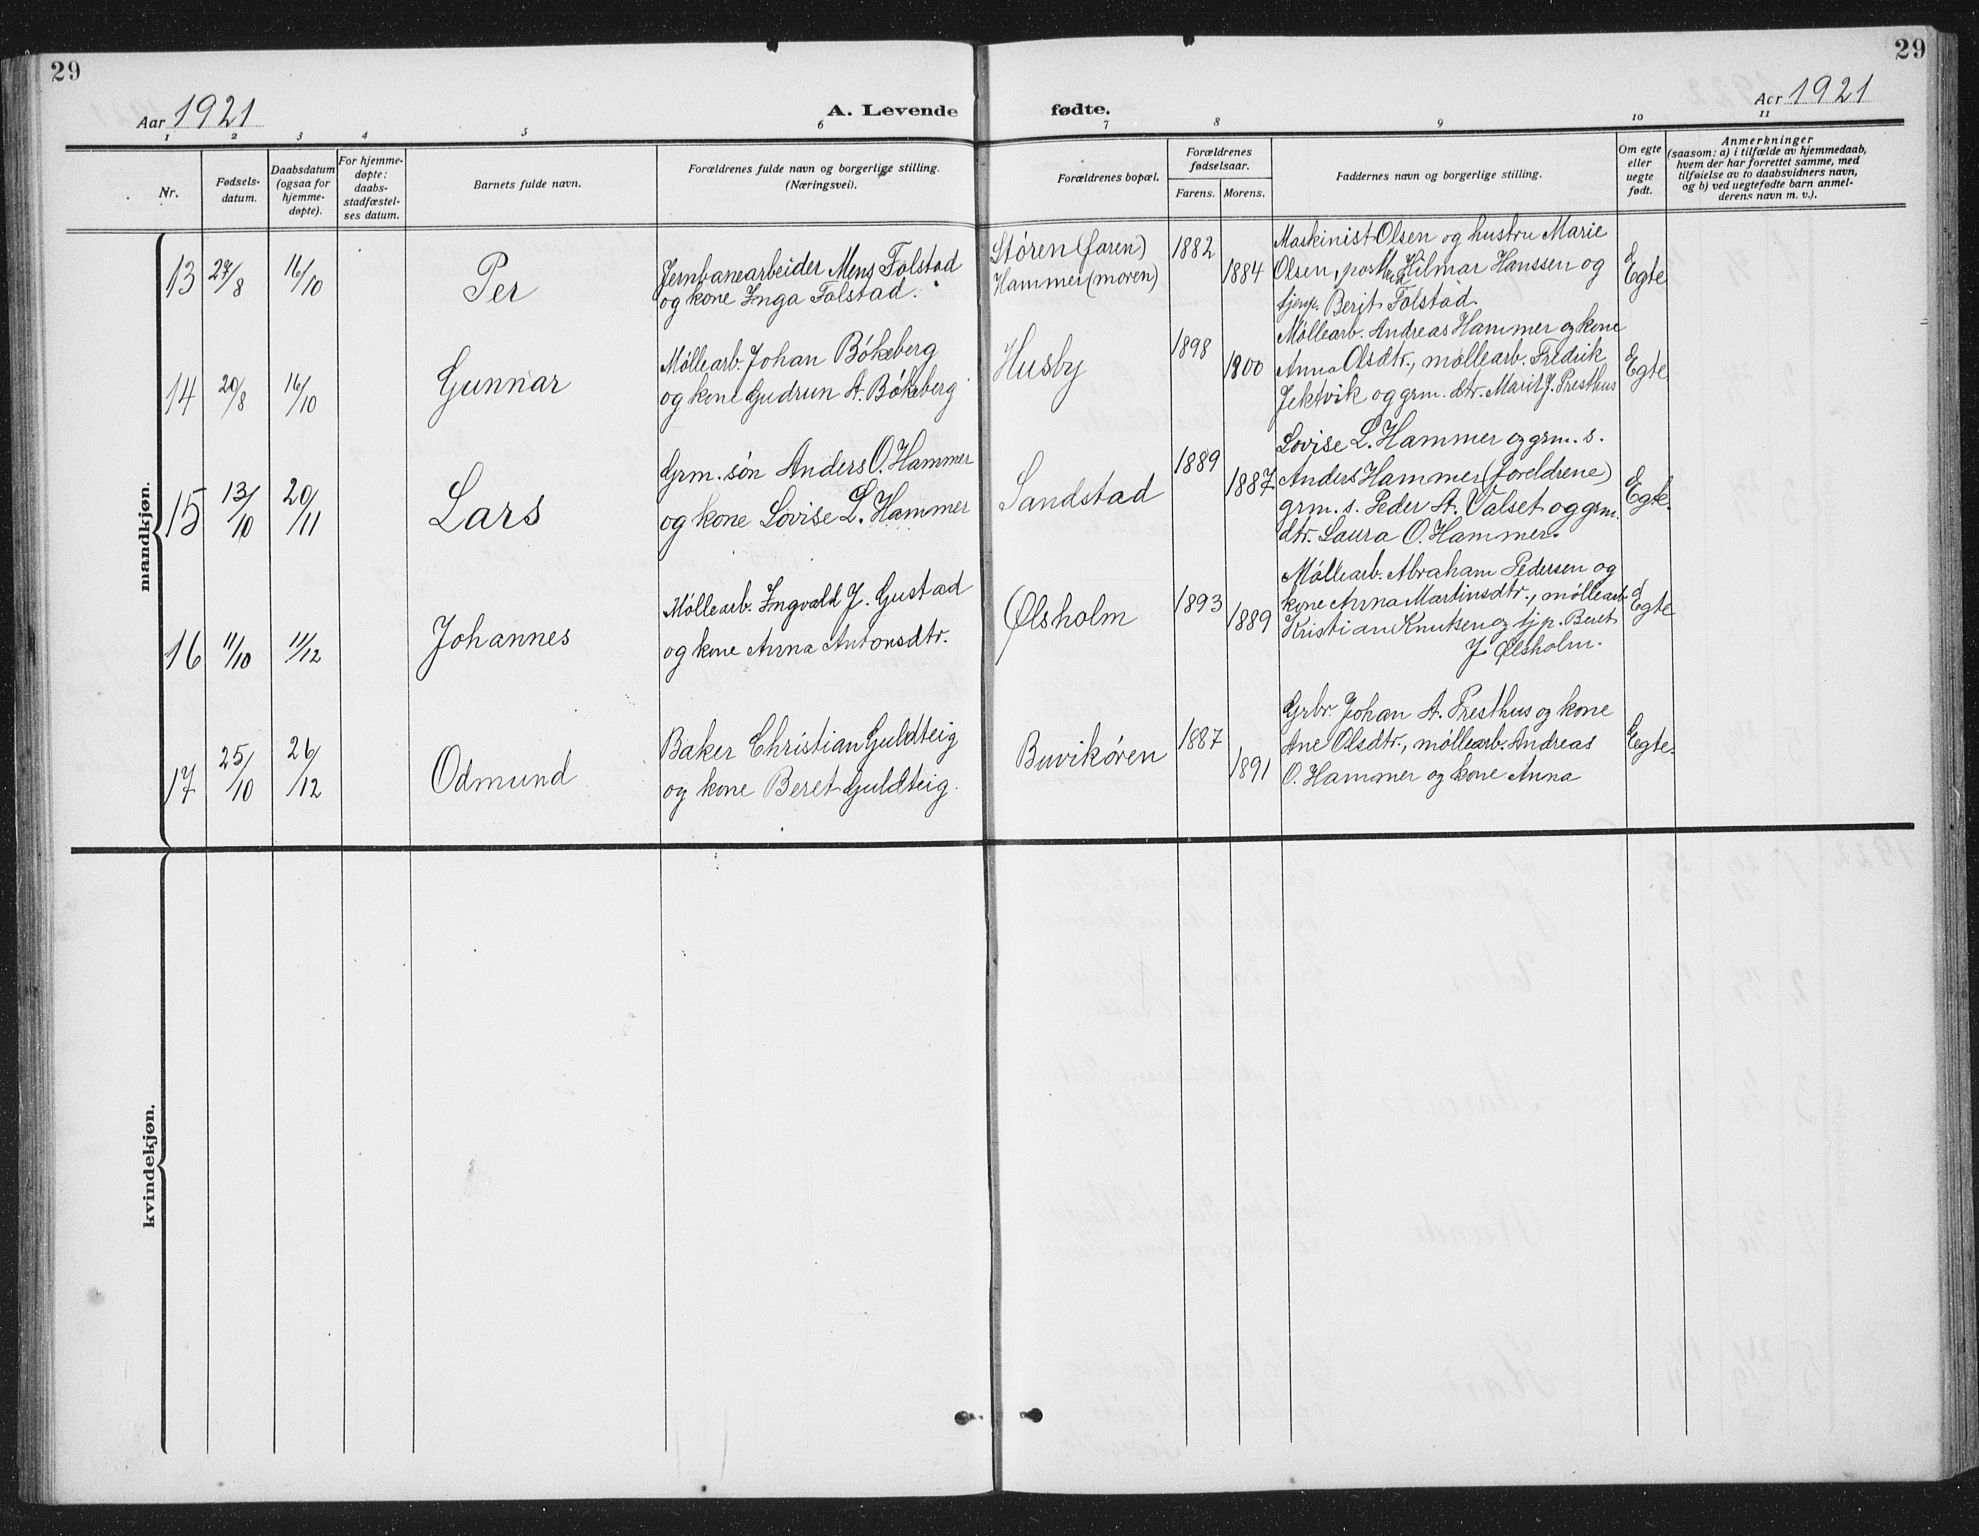 29
29
Aar 1921
A. Levende fødte.
Aar 1921
1 2 3 4 5 6 7 8 9 10 11
Nr.
Fødsels-
datum.
Daabsdatum
(ogsaa for
hjemme-
døpte).
For hjemme-
døpte:
daabs-
stadfæstel-
ses datum.
Barnets fulde navn.
Forældrenes fulde navn og borgerlige stilling.
(Næringsvei).
Forældrenes bopæl.
Forældrenes
fødselsaar.
Farens. Morens.
Faddernes navn og borgerlige stilling.
Om egte
eller
uegte
født.
Anmerkninger
(saasom: a) i tilfælde av hjemmedaab,
hvem der har forrettet samme, med
tilføielse av to daabsvidners navn,
og b) ved uegtefødte barn anmel-
derens navn m. v.).
mandkjøn.
13 27/8 16/10 Per
Jernbanearbeider Mens Folstad
og kone Inga Folstad.
Støren (faren)
Hammer (moren)
1882 1884
Maskinist Olsen og hustru Marie
Olsen, Hilmar Hanssen og
tjenp. Berit Folstad.
Egte
14 20/8 16/10 Gunnar
Møllearb. Johan Bökeberg
og kone Gudrun A. Bökeberg
Husby
1898 1900
Møllearb. Andreas Hammer og kone
Anna Olsdtr., møllearb. Fredrik
Jektvik og grm. dtr. Marit J. Presthus
Egte.
15 13/10 20/11 Lars
Grm. søn Anders O. Hammer
og kone Lovise L. Hammer
Sandstad
1889 1887
Lovise L. Hammer og grm. s.
Anders Hammer (foreldrene)
grm. s. Peder A. Valset og grm.
dtr. Laura O. Hammer.
Egte.
16 11/10 11/12 Johannes
Møllearb. Ingvald J. Gustad
og kone Anna Antonsdtr.
Ølsholm
1893 1889
Møllearb. Abraham Pedersen og
kone Anna Martinsdtr., møllearb.
Kristian Knutsen og tjp. Beret
J. Ølsholm.
Egte
17 25/10 26/12 Odmund
Baker Christian Guldteig
og kone Beret Guldteig.
Buvikøren
1887 1891
Grbr. Johan A. Presthus og kone
Ane Olsdtr., møllearb. Andreas
O. Hammer og kone Anna
Egte.
kvindekjøn.